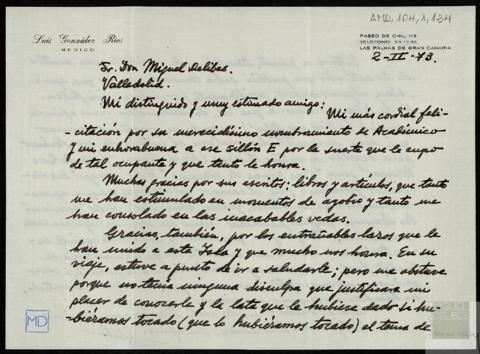 AMD, 104, 1, 124
Luis González Ríos
MEDICO
PASEO DE CHIL, 115
LAS PALMAS DE GRAN CANARIA
2-II-73.
Sr. Don Miguel Delibes.
Valladolid.
Mi distinguido y muy estimado amigo:
Mi más cordial feli-
-citación por su merecidísimo nombramiento de Académico
y mi enhorabuena a ese sillón E por la suerte que le cupo
de tal ocupante y que tanto le honra.
Muchas gracias por sus escritos; libros y artículos, que tanto
me han estimulado en momentos de agobio y tanto me
han consolado en las inacabables vedas.
Gracias, también, por los entrañables lazos que le
han unido a esta Isla y que mucho nos honra. En su
viaje, estuve a punto de ir a saludarle; pero me abstuve
porque no tenía ninguna disculpa que justificara mi
placer de conocerle y la lata que le hubiese dado si hu-
-biéramos tocado (que lo hubiéramos tocado) el tema de
MD
MIGUEL
DELIBES